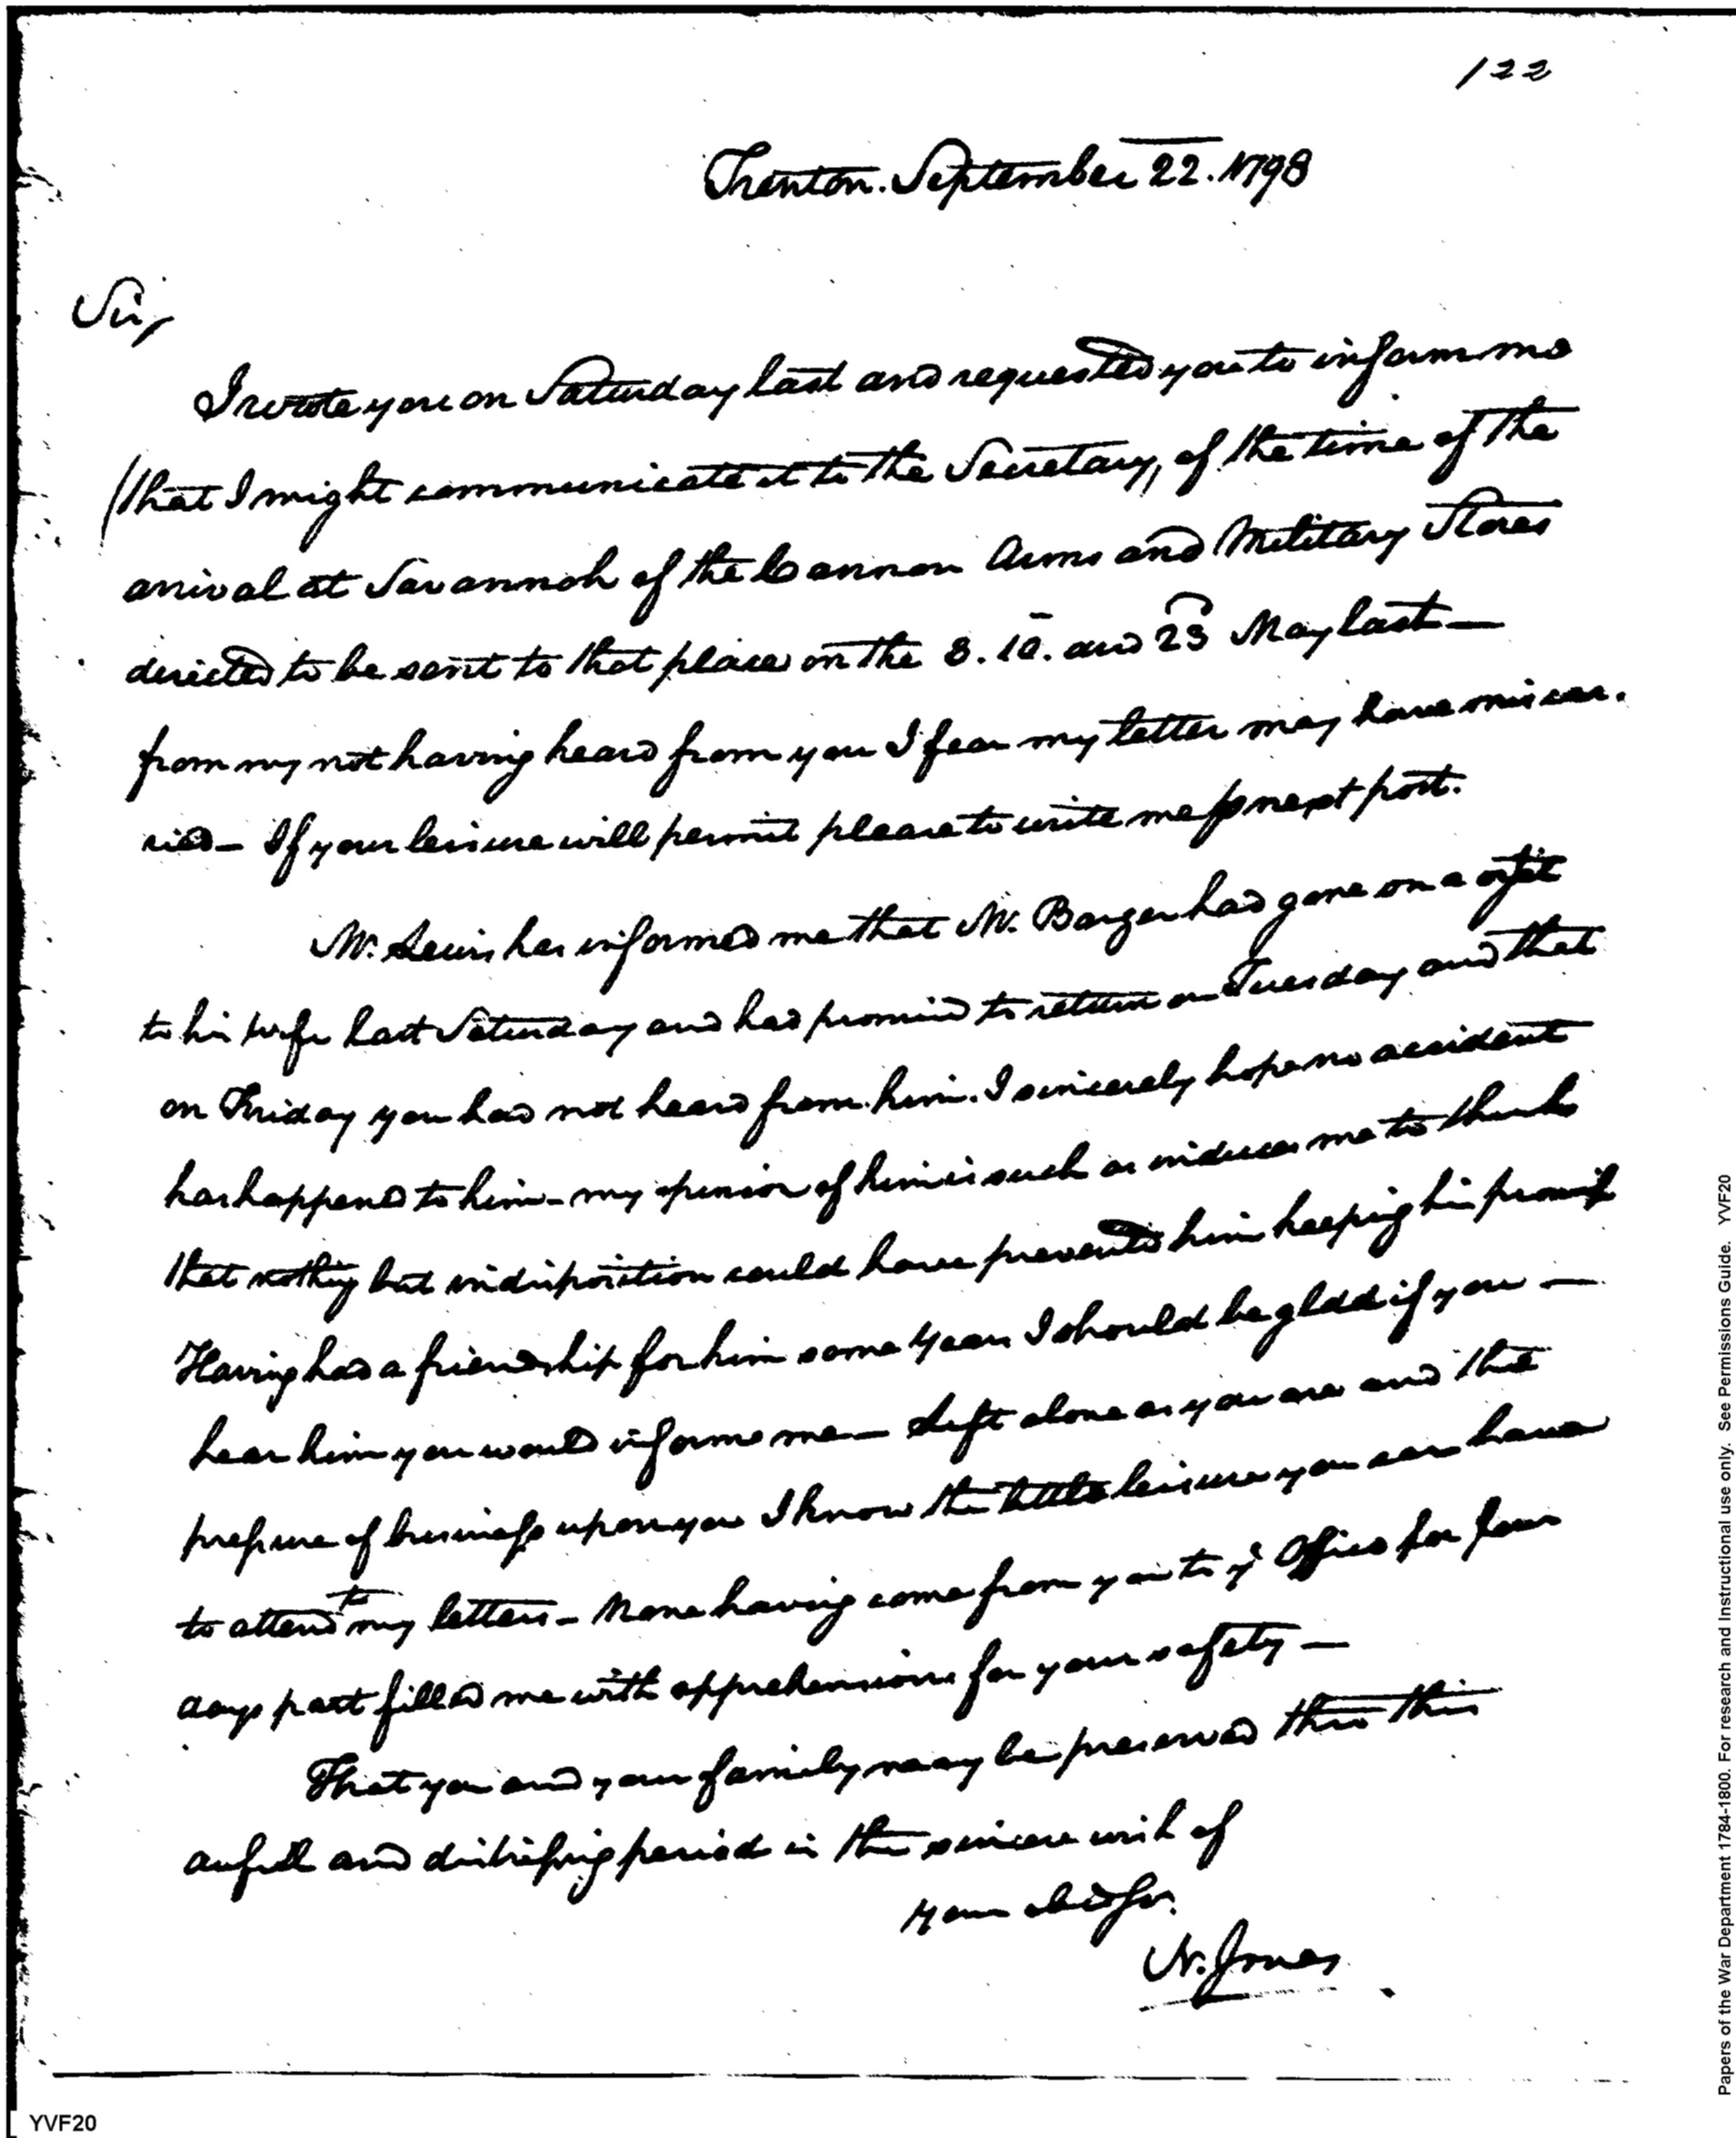 122
Trenton. September 22. 1798
Sir,
I wrote you on Saturday last and requested you to inform me
(that I might communicate it to the Secretary, of the time of the
arrival at Savannah of the Cannon Arms and Military Stores
directed to be sent to that place on the 8. 10. and 23 May last —
from my not having heard from you I fear my letter may have miscar.
ried — If your leisure will permit please to write me ⅌ next post.
Mr. Lewis has informed me that Mr. Barger had gone on a visit
to his wife last Saturday and had promisd to return on Tuesday and that
on Friday you had not heard from him. I sincerely hope no accident
has happened to him — my opinion of him is such as induces me to think
that nothing but indisposition could have prevented him keeping his promise
Having had a friendship for him some years I should be glad if you —
hear him you would inform me — Left alone as you are and the
pressure of business upon you I know the little leisure you can have
to attend to my letters — None having come from you to ye Office for four
days past filled me with apprehensions for your safety —
That you and your family may be preserved thro this
aufull and distressing period is the sincere wish of
Your
N. Jones
YVF20
Papers of the War Department 1784-1800. For research and Instructional use only. See Permissions Guide. YVF20